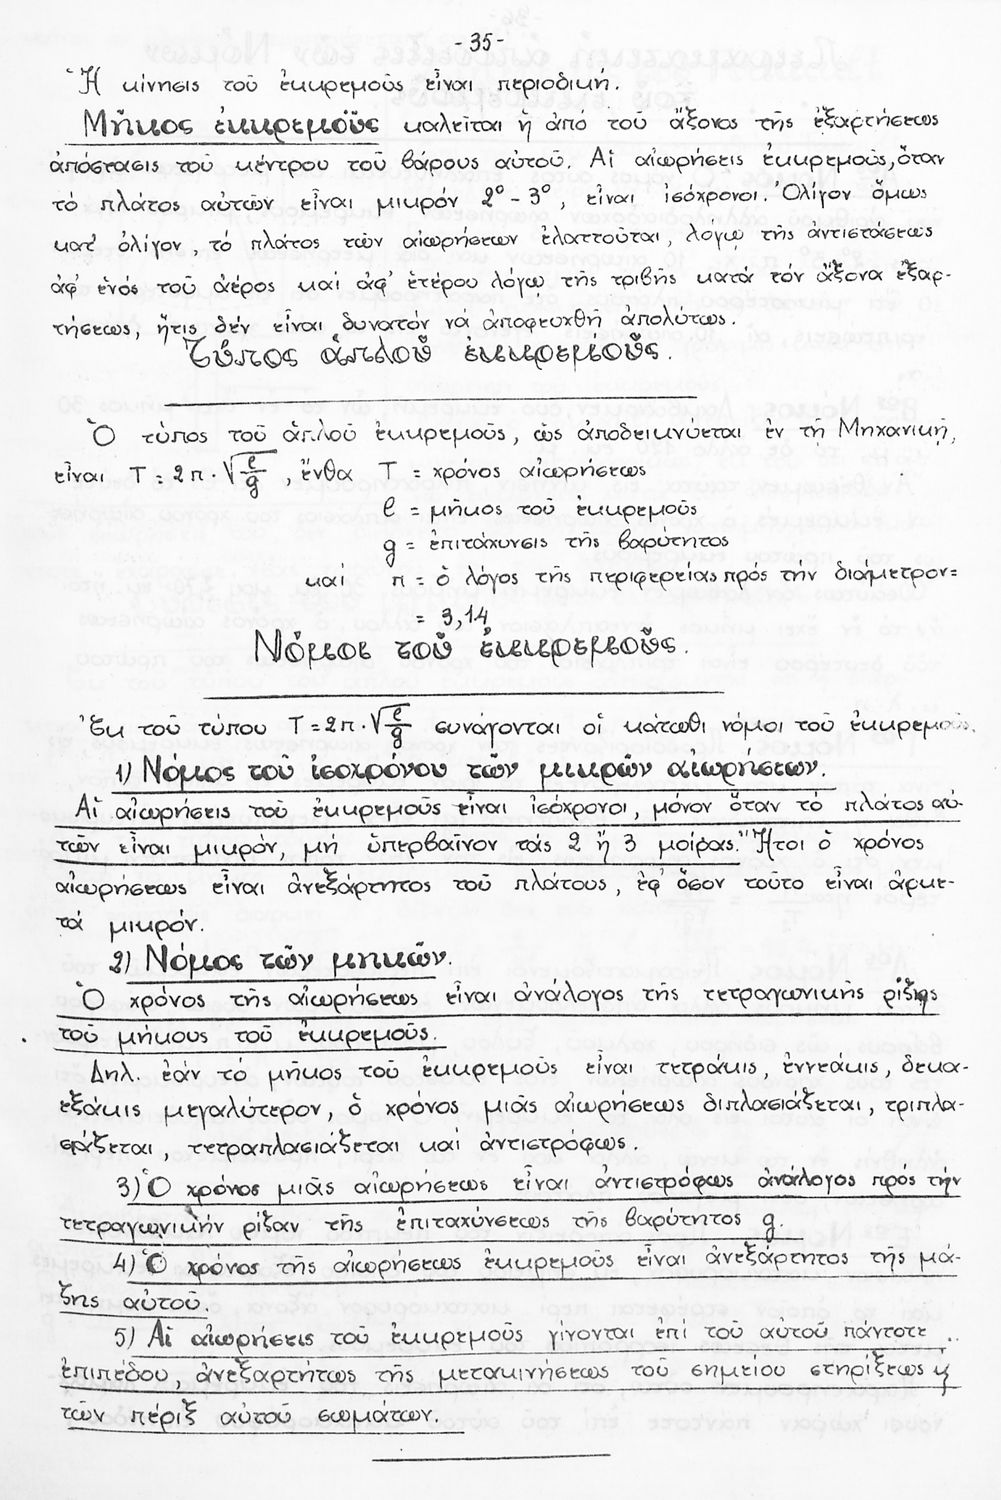 -35-
Ἡ κίνησις τοῦ ἐκκρεμοῦς εἶναι περιοδική.
Μῆκος ἐκκρεμοῦς καλεῖται ἡ ἀπό τοῦ ἄξονος τῆς ἐξαρτήσεως
ἀπόστασις τοῦ κέντρου τοῦ βάρους αὐτοῦ. Αἱ αἰωρήσεις ἐκκρεμοῦς, ὅταν
τό πλάτος αὐτῶν εἶναι μικρόν 2° - 3°, εἶναι ἰσόχρονοι. Ὀλίγον ὅμως
κατ' ὀλίγον, τό πλάτος τῶν αἰωρήσεων ἐλαττοῦται, λόγω τῆς ἀντιστάσεως
ἀφ' ἑνός τοῦ ἀέρος καί ἀφ' ἑτέρου λόγω τῆς τριβῆς κατά τόν ἄξονα ἐξαρ-
τήσεως, ἥτις δέν εἶναι δυνατόν νά ἀποφευχθῆ ἀπολύτως.
Τύπος ἁπλοῦ ἐκκρεμοῦς.
Ὁ τύπος τοῦ ἁπλοῦ ἐκκρεμοῦς, ὡς ἀποδεικνύεται ἐν τῆ Μηχανικῆ,
εἶναι T = 2π·√ℓ/g, ἔνθα T = χρόνος αἰωρήσεως
ℓ = μῆκος τοῦ ἐκκρεμοῦς
g = ἐπιτάχυνσις τῆς βαρύτητος
καί π = ὁ λόγος τῆς περιφερείας πρός τήν διάμετρον =
= 3,14
Νόμοι τοῦ ἐκκρεμοῦς.
Ἐκ τοῦ τύπου T = 2π·√ℓ/g συνάγονται οἱ κάτωθι νόμοι τοῦ ἐκκρεμοῦς.
1) Νόμος τοῦ ἰσοχρόνου τῶν μικρῶν αἰωρήσεων.
Αἱ αἰωρήσεις τοῦ ἐκκρεμοῦς εἶναι ἰσόχρονοι, μόνον ὅταν τό πλάτος αὐ-
τῶν εἶναι μικρόν, μή ὑπερβαῖνον τάς 2 ἤ 3 μοίρας." Ἤτοι ὁ χρόνος
αἰωρήσεως εἶναι ἀνεξάρτητος τοῦ πλάτους, ἐφ' ὅσον τοῦτο εἶναι ἀρκε-
τά μικρόν.
2) Νόμος τῶν μηκῶν.
Ὁ χρόνος τῆς αἰωρήσεως εἶναι ἀνάλογος τῆς τετραγωνικῆς ρίζης
τοῦ μήκους τοῦ ἐκκρεμοῦς.
Δηλ. ἐάν τό μῆκος τοῦ ἐκκρεμοῦς εἶναι τετράκις, ἐννεάκις, δεκα-
εξάκις μεγαλύτερον, ὁ χρόνος μιᾶς αἰωρήσεως διπλασιάζεται, τριπλα-
σιάζεται, τετραπλασιάζεται καί ἀντιστρόφως.
3) Ὁ χρόνος μιᾶς αἰωρήσεως εἶναι ἀντιστρόφως ἀνάλογος πρός τήν
τετραγωνικήν ρίζαν τῆς ἐπιταχύνσεως τῆς βαρύτητος g.
4) Ὁ χρόνος τῆς αἰωρήσεως ἐκκρεμοῦς εἶναι ἀνεξάρτητος τῆς μά-
ζης αὐτοῦ.
5) Αἱ αἰωρήσεις τοῦ ἐκκρεμοῦς γίνονται ἐπί τοῦ αὐτοῦ πάντοτε
ἐπιπέδου, ἀνεξαρτήτως τῆς μετακινήσεως τοῦ σημείου στηρίξεως ἤ
τῶν πέριξ αὐτοῦ σωμάτων.